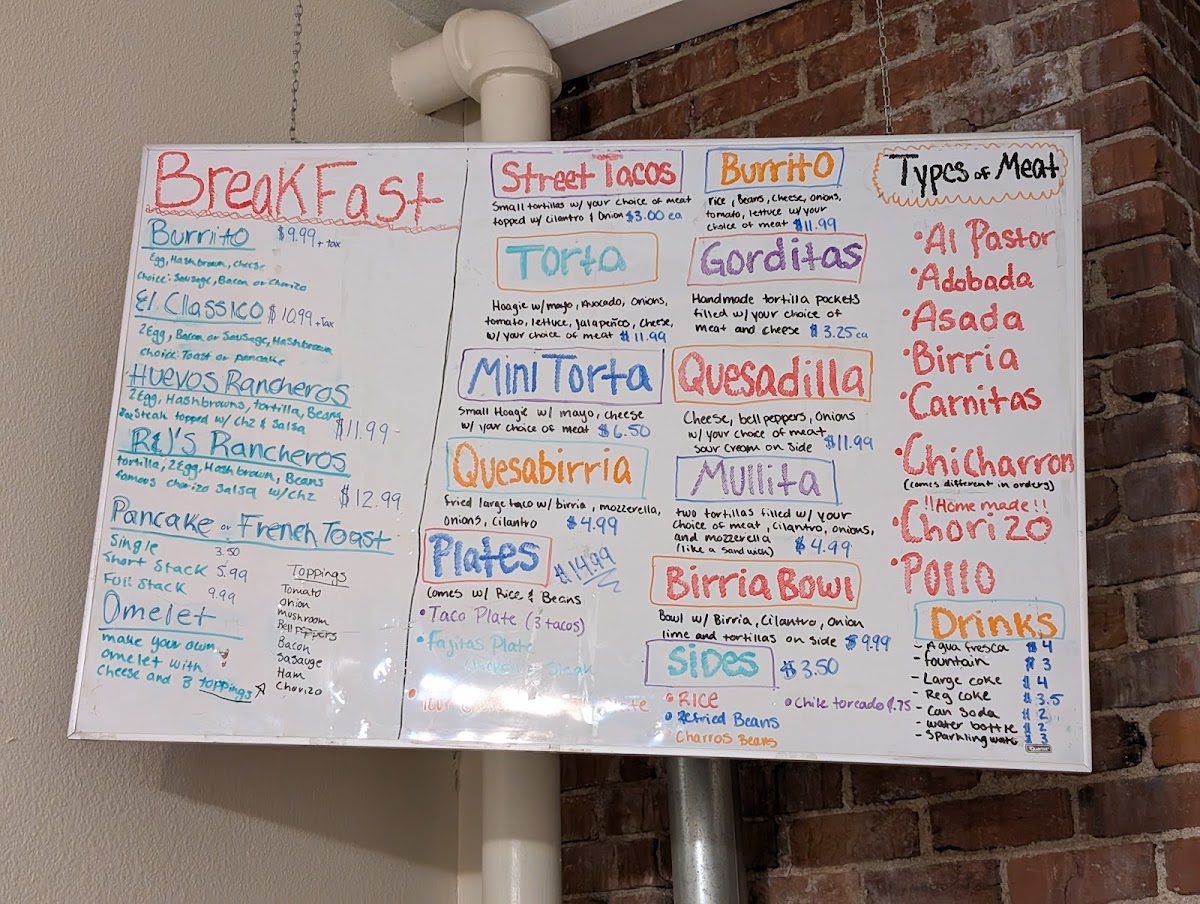 BreakFast
Burrito $9.99 + tax
Egg, Hashbrown, cheese
choice: Sausage, Bacon or Chorizo
El Classico $10.99 + Tax
2Egg, Bacon or Sausage, Hashbrown
choice: Toast or pancake
Huevos Rancheros
2Egg, Hashbrowns, tortilla, Beans
Steak topped w/ chz & Salsa $11.99
R&J's Rancheros
tortilla, 2Egg, Hashbrown, Beans
famous chorizo Salsa w/chz $12.99
Pancake or French Toast
Single 3.50
Short Stack 5.99
Full Stack 9.99
Omelet
make your own
omelet with
cheese and 3 toppings
Toppings
Tomato
Onion
mushroom
Bell peppers
Bacon
Sasauge
Ham
Chorizo
Street Tacos
Small tortillas w/ your choice of meat
topped w/ cilantro & Onion $3.00 ea
Torta
Hoagie w/mayo, Avocado, Onions,
tomato, lettuce, jalapeños, cheese,
w/your choice of meat $11.99
Mini Torta
Small Hoagie w/ mayo, cheese
w/ your choice of meat $6.50
Quesabirria
fried large taco w/ birria, mozzerella,
onions, cilantro $4.99
Plates $14.99
Comes w/ Rice & Beans
• Taco Plate (3 tacos)
• Fajitas Plate
Burrito
rice, Beans, cheese, onions,
tomato, lettuce w/your
choice of meat $11.99
Gorditas
Handmade tortilla pockets
filled w/your choice of
meat and cheese $3.25 ea
Quesadilla
Cheese, bell peppers, onions
w/your choice of meat
sour cream on side $11.99
Mullita
two tortillas filled w/ your
choice of meat, cilantro, onions,
and mozzerella
(like a sandwich) $4.99
Birria Bowl
Bowl w/ Birria, Cilantro, Onion
lime and tortillas on side $9.99
Sides $3.50
• Rice
• Refried Beans
• Charros Beans
• Chile toreado 1.75
Types of Meat
• Al Pastor
• Adobada
• Asada
• Birria
• Carnitas
• Chicharron
(comes different in orders)
!!Home made!!
• Chorizo
• Pollo
Drinks
- Agua fresca $4
- fountain $3
- Large coke $4
- Reg coke $3.5
- Can Soda $2
- water bottle $2
- Sparkling wate $3